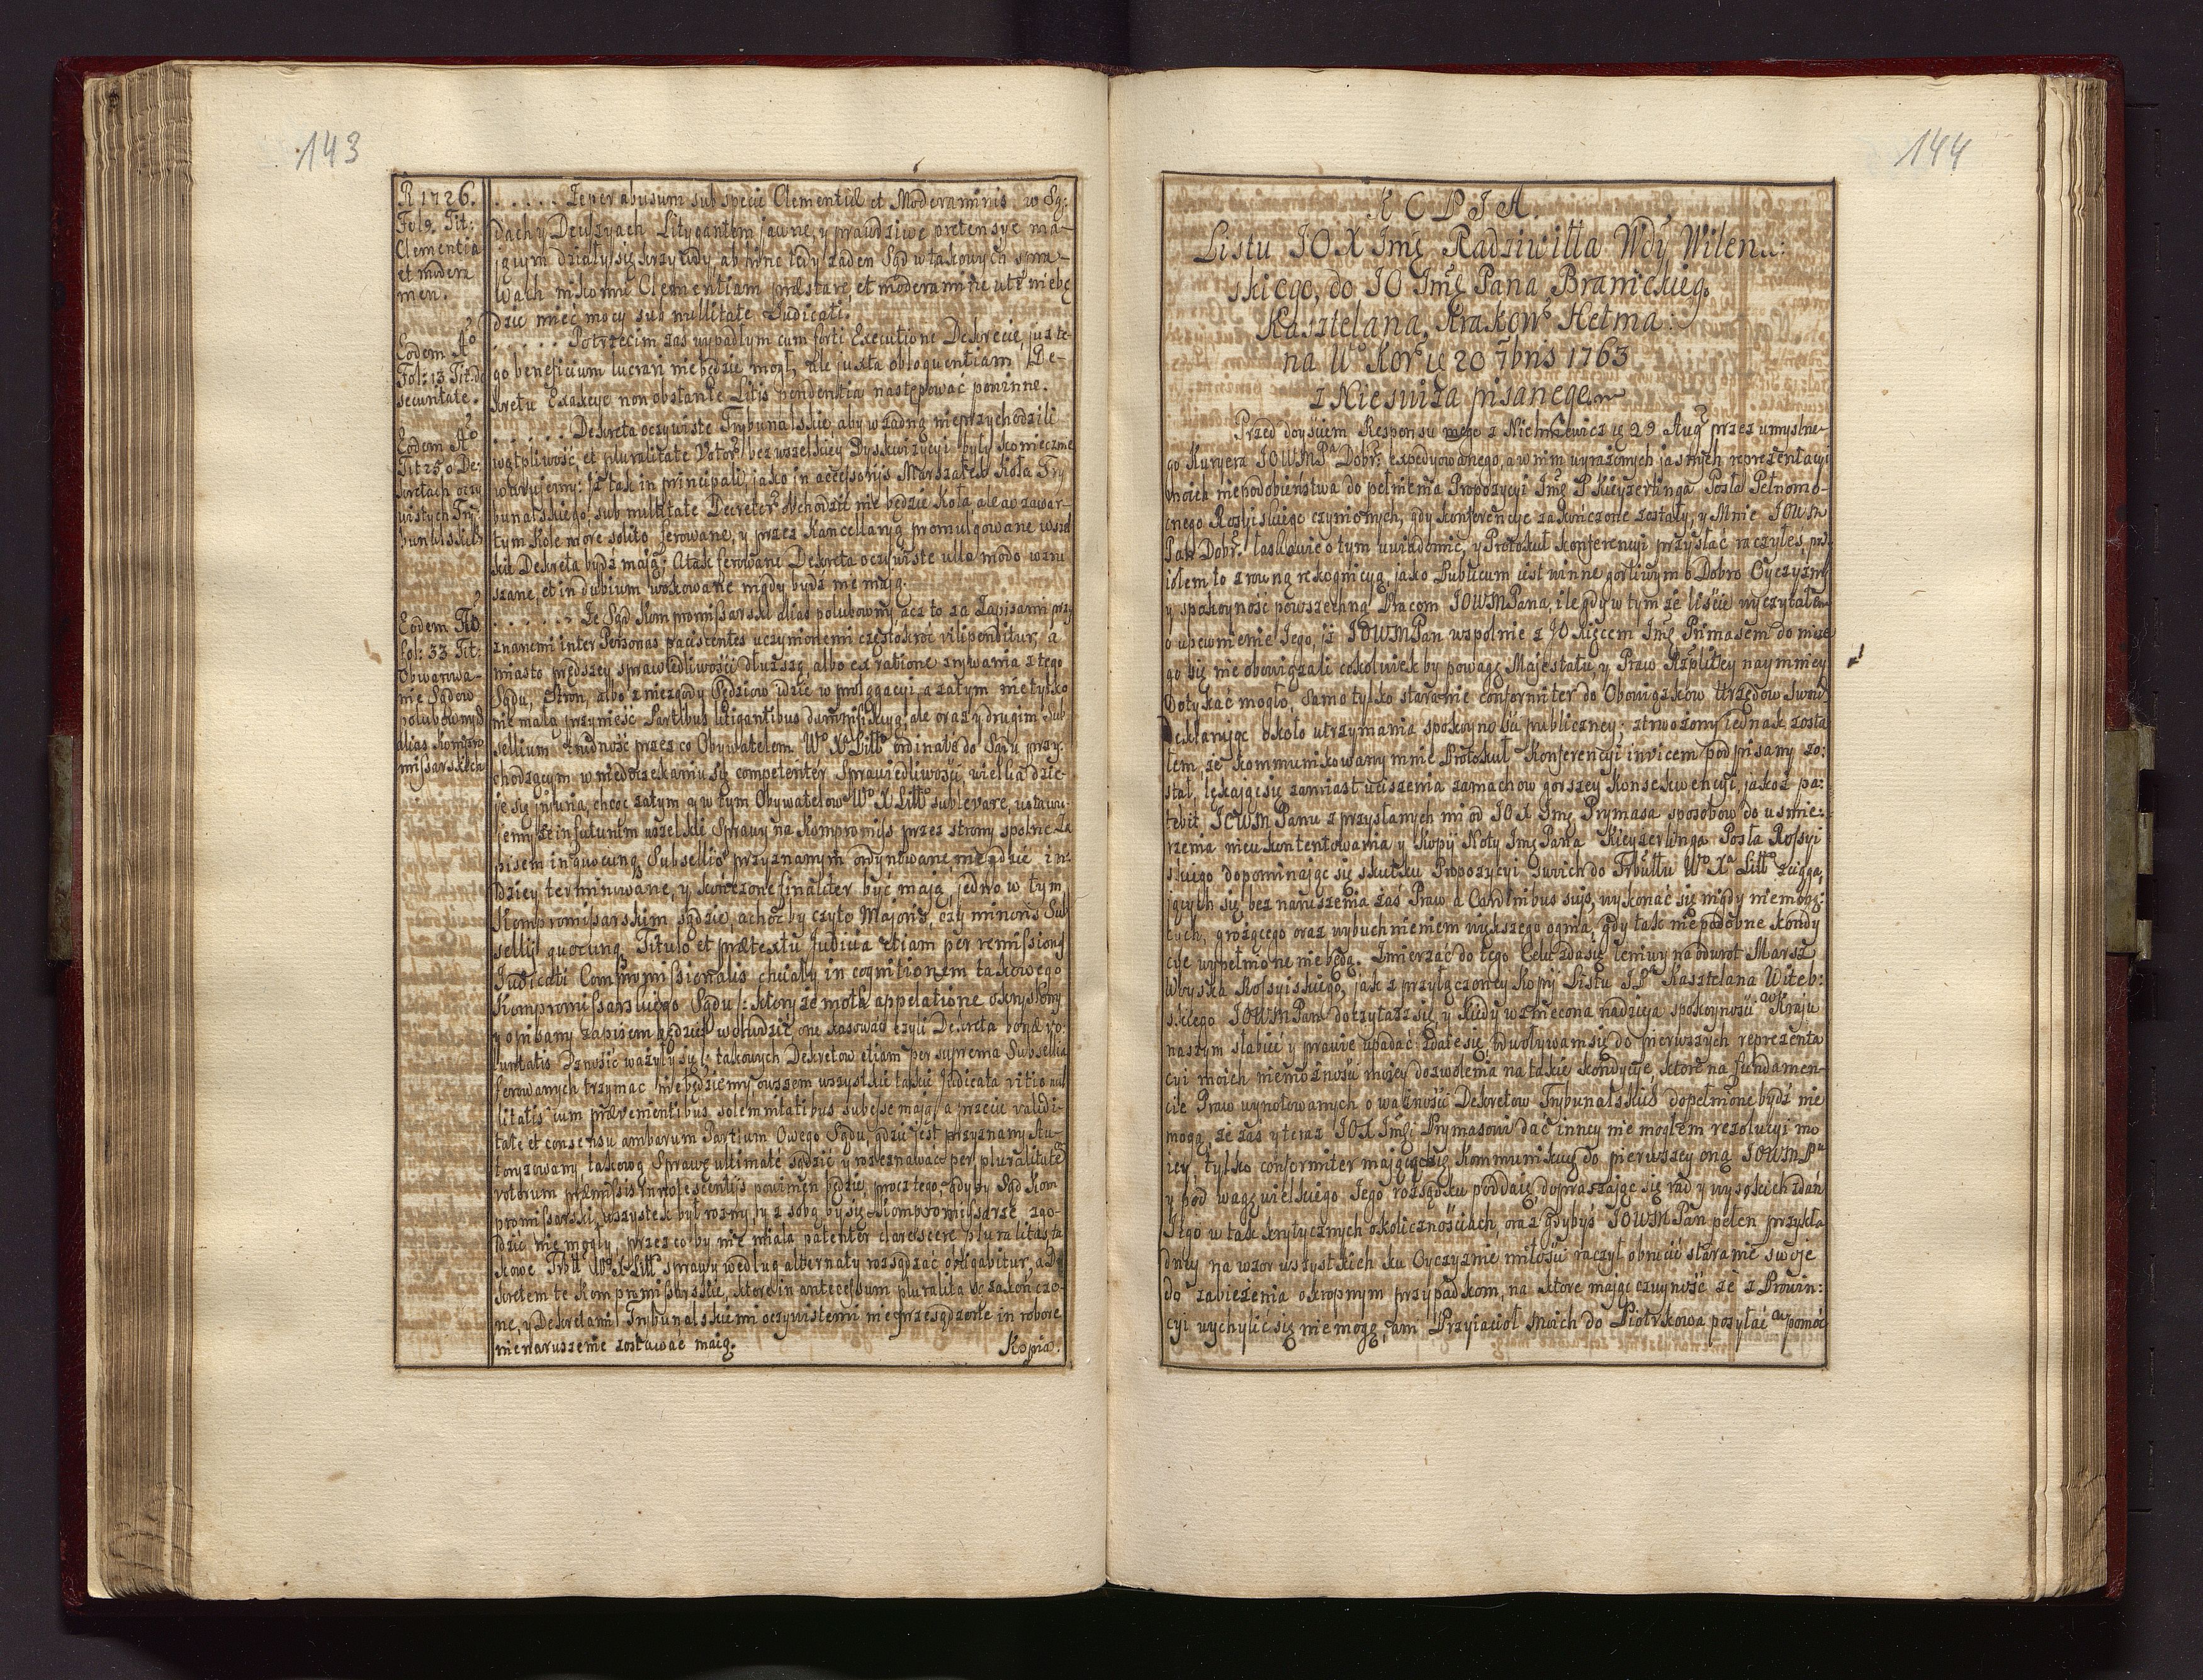 143
R 1726.
Fol 9. Tit:
Clementia
et modera
men.
. . . . . Ze per abusum sub specie Clementiæ et Moderaminis w Są:
dach y Decyzyach Litygantem jawne, y prawdziwe pretensye ma-
jącym działy się krzywdy, ab hinc tedy żaden Sąd w takowych spra-
wach nikomu Clementiam præstare, et moderamine uti niebę
dzie mieć mocy sub nullitate Judicati.
Eodem Aõ
Fol: 13 Tit: de
securitate.
. . . . . Potrzecim zas wypadłym cum forti Executione Dekrecie, juz te-
go beneficium lucrari niebędzie mogł, ale juxta obloquentiam De-
kretu Exakcye non obstante Litis pendentia następować powinne.
Eodem Aõ
Tit 25 o De:
kretach oczy
wistych Try
bunalskich
. . . . . Dekreta oczywiste Trybunalskie aby w żadną nieprzychodzili
wątpliwość, et pluralitate Votor bez wszelkiey Dyskwizycyi były koniecznie
warujemy: iż tak in principali, jako in accessorijs Marszałek Koła Try
bunalskiego sub nullitate Decretor Wchodzić nie będzie Koła ale w zawar-
tym Kole more solito ferowane, y przez Kancellaryą promulgowane wszel
kie Dekreta bydź mają; Atak ferowane Dekreta oczywiste ullo modo wzru
szane, et in dubium wokowane nigdy bydź nie mają.
Eodem Aõ
fol: 33 Tit:
Obwarowa-
nie Sądow
polubownych
alias Kompro
missarskich
. . . . . Ze Sąd Kompromissarski alias polubowny, acz to za Zapisami przy
znanemi inter Personas paciscentes uczynionemi częstokroć vilipenditur, a
miasto prędszey sprawiedliwości dłuższą, albo ex ratione zrywania z tego
Sądu, Stron, albo z niezgody Sędziow idzie w prolągacyi, a zatym nie tylko
nie małą przynieść Partibus litigantibus damnifikacyą, ale oraz y drugim Sub
sellium trudność przez co Obywatelom Wo Xa Litt ordinatè do Sądu przy-
chodzącym w niedoczekaniu się competenter Sprawiedliwości wielka dzie-
je się injuria, chcąc zatym y w tym Obywatelow Wo X Litt sublevare, ustawu-
jemy że in futurum wszelkie Sprawy na Kompromiss przez strony spolnie Za
pisem in quocunq Subsellio przyznanym ordynowane, nie gdzie in-
dziey terminowane, y kończone finaliter być mają, jedno w tym
Kompromissarskim sądzie, a choć by czyto Majoris, czy minoris Sub
sellij quocunq Titulo et prætextu Judicia etiam per remissiony
Judicati Compromissionalis chciały in cognitionem takowego
Kompromissarskiego Sądu /: ktory że mota appelatione okryslony
y opisany zapisem będzie/ wchodzić one kasować czyli Dekreta bonæ vo-
luntatis znosić ważyły się, takowych Dekretow etiam per suprema Subsellia
ferowanych trzymac niebędziemy owszem wszystkie takie Judicata vitio nul
litatis cum prævenientibus solemnitatibus subesse mają, a przecie validi-
tate et consensu ambarum Partium Owego Sądu, gdzie jest przyznany Au-
toryzowany takową Sprawę ultimatè sądzić y rozeznawać per pluralitatem
votorum præmissis inviolescentijs powinien będzie, procz tego, gdyby Sąd Kom
promissarski, wszystek był rozny, y z sobą by się Kompromissarze zgo-
dzić nie mogly, przez co by nie miała patenter clarescere pluralitas, ta
kowe Trbu Wo X Litt sprawy według alternaty rozsądzać obligabitur, a De
kretem te Kompromissarskie, ktore in antecessum pluralitate zakończo-
ne, y Dekretami Trybunalskiemi oczywistemi nieprzesądzone in robore
nienaruszenie zostawać mają.
Kopia.
144
KOPIA.
Listu JOX Imę Radziwiłła Wdy Wilen:
skiego, do JO Imę Pana Branickieg
Kasztelana Krakow Hetma:
na Wo Kor ię 20 7bris 1763
z Nieswiża pisanego
Przed doysciem Responsu mego z Niehniewicz ię 29 Aug przez umyslne-
go Kuryera JOWMPa Dobr: expedyowanego, a w nim wyrażonych jasnych reprezentacyi
moich niepodobieństwa do pełnienia Propozycyi Imę P Kieyzerlinga Posła Pełnomo-
cnego Rossyiskiego czynionych, gdy konferencye zakończone zostały, y Mnie JOWM
Pan Dobr: łaskawie o tym uwiadomić, y Protokuł konferencyi przysłać raczyłeś, przy
iołem to z rowną rekognicyą, jako Publicum iest winne gorliwym o Dobro Oyczyzny
y spokoyność powszechną Pracom JOWMPana, ile gdy w tym że liscie wyczytałem
o upewnienie Jego, iż JOWMPan wspolnie z JO Xięcem Imę Primasem do nicze
go się nie obowiązali cokolwiek by powagę Majestatu, y Praw Rzplitey naymniey
Dotykać mogło, samo tylko staranie conformiter do Obowiązkow Urzędow Swoich
Deklarując około utrzymania spokoyności publiczney; ztrwożony iednak zosta
łem, że kommunikowany mnie Protokuł Konferencyi invicem podpisany zo:
stał, lękając się zamiast uciszenia zamachow gorszey Konsekwencyi, jakoż pa:
tebit JOWM Panu z przysłanych mi od JOX Imę Prymasa sposobow do usmie:
rzenia nieukontentowania y Kopij Noty Imę Pana Kieyzerlinga Posła Rossyi
skiego dopominając się skutku Propozycyi Swoich do Trbułłu Wo Xa Litt sciąga,
jących się, bez naruszenia zaś Praw a Cardinibus suis, wykonać się nigdy niemogą:
cych, grożącego oraz wybuchnieniem większego ognia, gdy tak niepodobne kondy
cye wypełnione niebędą. Zmierzać do tego Celu zda się leniwy na odwrot Marsz
Woyska Rossyiskiego, jak z przyłączoney Kopij Listu JPa Kasztelana Witeb:
skiego JOWMPan doczytasz się, y kiedy wzniecona nadzieja spokoyności w Kraju
naszym słabieć y prawie upadać zdaie się, odwoływam się do pierwszych reprezenta
cyi moich niemożności mojey dozwolenia na takie kondycye, ktore na fundamen-
cie Praw wynotowanych o ważności Dekretow Trybunalskich dopełnione bydź nie
mogą, że zaś y teraz JOX Imę Prymasowi dać inney nie mogłem rezolucyi mo
iey, tylko conformiter mającą się Kommunikuię do pierwszey oną JOWMPu
y pod wagę wielkiego Jego rozsądku poddaię dopraszając się rad y wysokich zdań
Jego w tak krytycznych okolicznościach, oraz gdybyś JOWM Pan pełen przykła
dney na wzor wszystkich ku Oyczyznie miłości raczył obrucić staranie swoje
do zabieżenia okropnym przypadkom, na ktore mając czuyność że z Prowin:
cyi wychylić się niemogę, ani Przyiacioł moich do Piotrkowa posyłać w pomoc